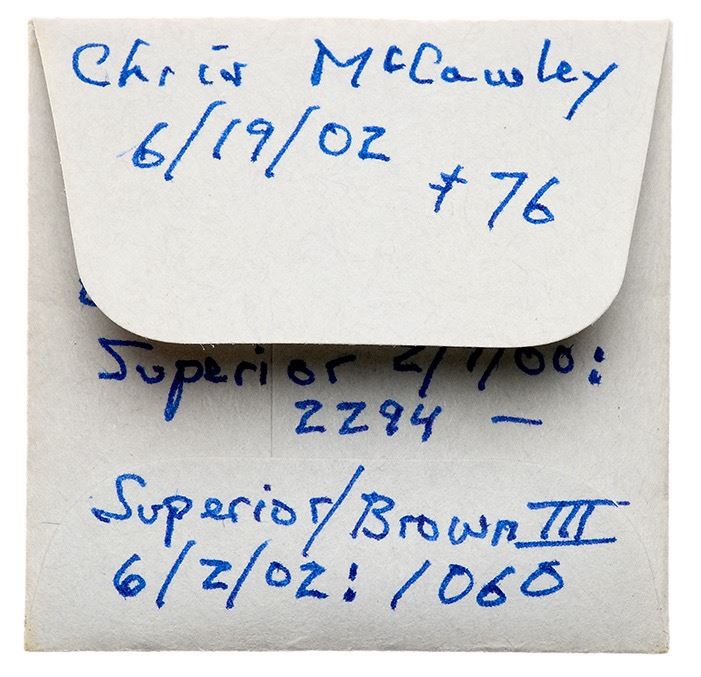 Chris McCawley
6/19/02
+ 76
Superior 2/1/00:
2294 —
Superior/Brown III
6/2/02: 1060